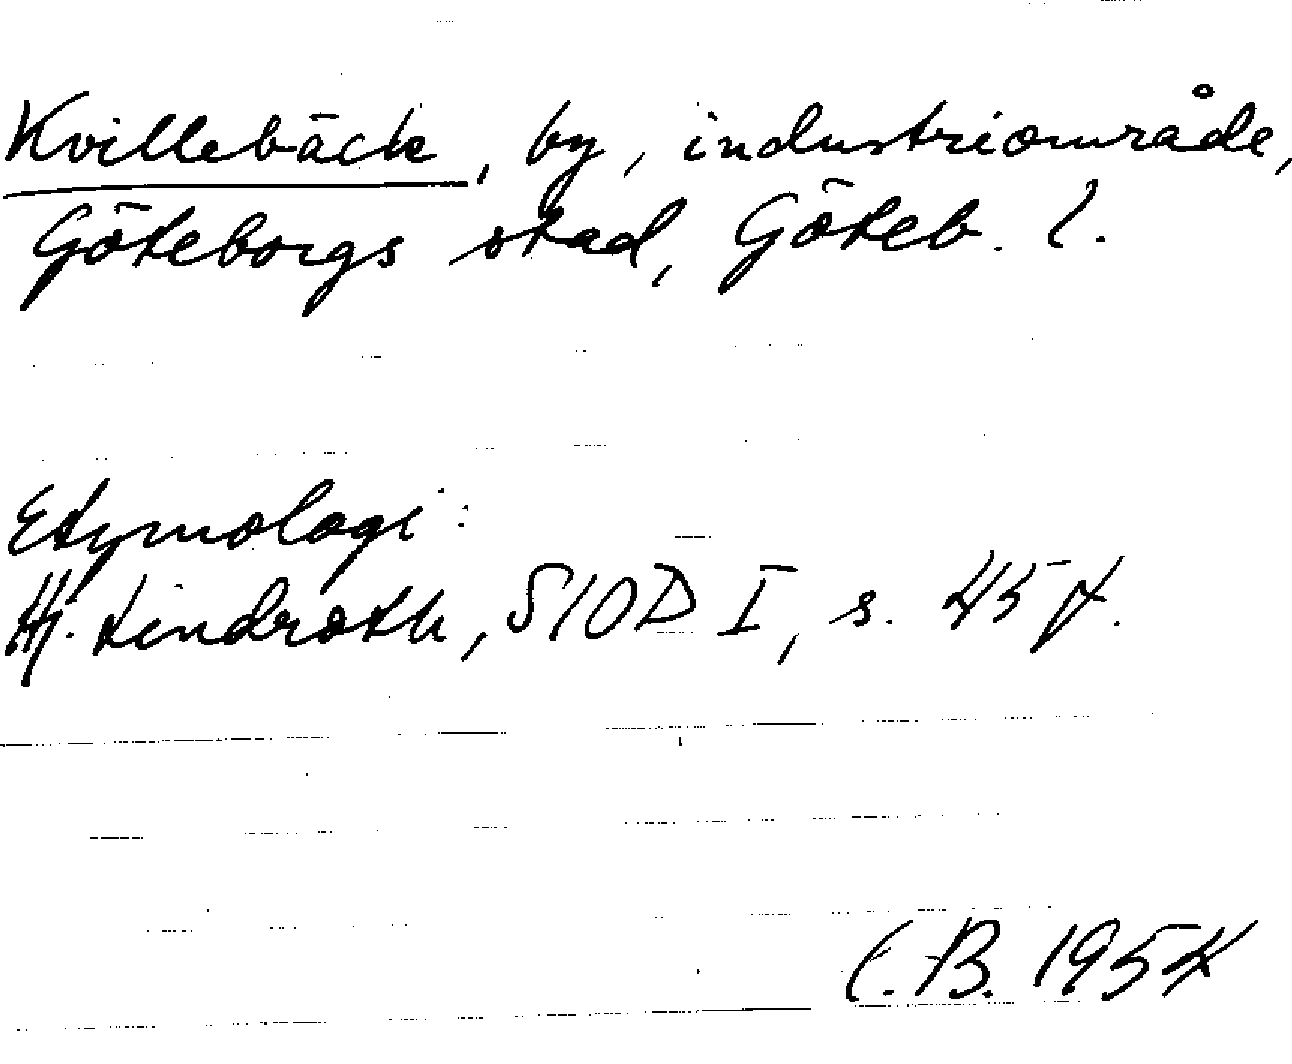 Kvillebäck, by, industriområde,
Göteborgs stad, Göteb. l.
Etymologi:
Hj. Lindroth, SIOD I, s. 45 f.
C.B. 1954